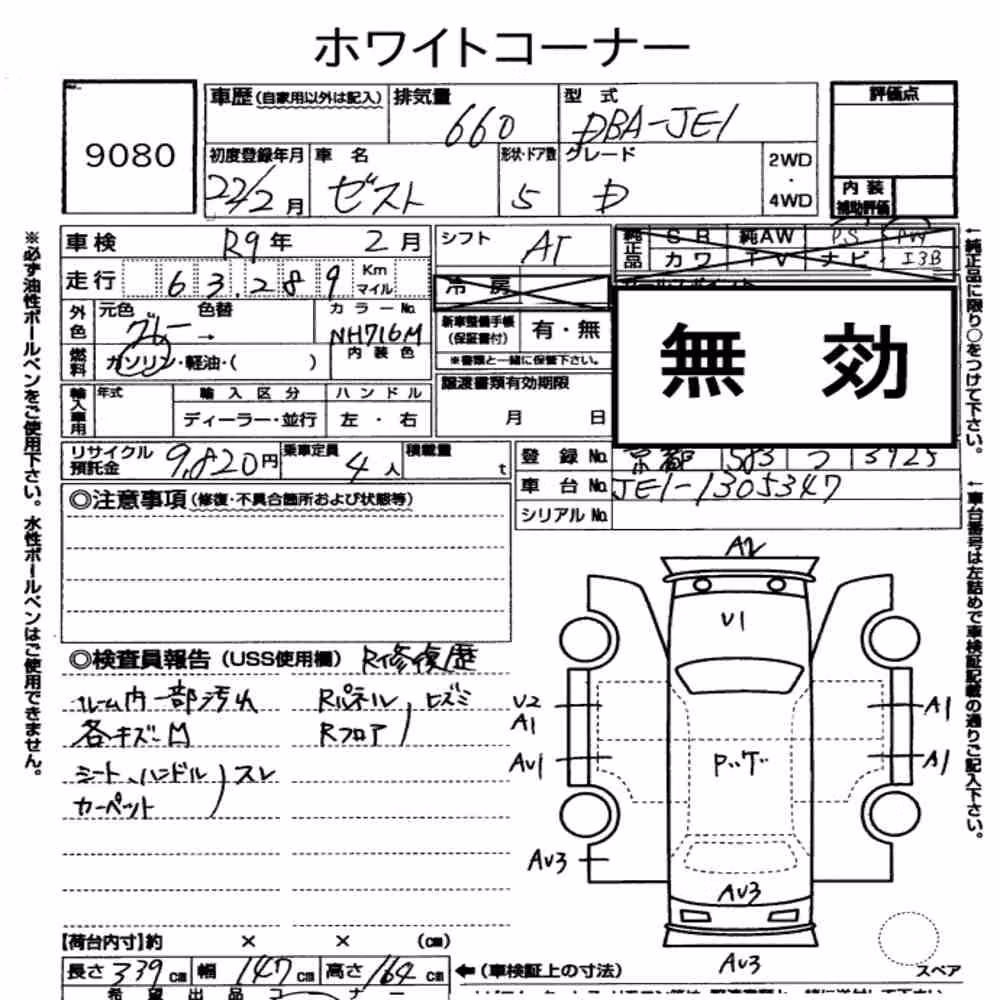 ホワイトコーナー
9080
車歴(自家用以外は記入) 排気量 660 型式 DBA-JE1
評価点
初度登録年月 22/2月 車名 ゼスト 形状・ドア数 5 グレード D 2WD・4WD
内装補助評価
車検 R9年 2月 シフト AT
純正品 SR 純AW PS PW
カワ TV ナビ・
走行 63,289 Km マイル
冷房
外色 元色 グレー 色替 → カラーNo. NH716M
内装色
燃料 ガソリン・軽油・( )
新車整備手帳(保証書付) 有・無
※書類と一緒に保管下さい。
無効
輸入車用 年式 輸入区分 ディーラー・並行 ハンドル 左・右
譲渡書類有効期限 月 日
リサイクル預託金 9,820円 乗車定員 4人 積載量 t
登録No. 京都 583 つ 3925
車台No. JE1-1305347
シリアルNo.
◎注意事項(修復・不具合箇所および状態等)
◎検査員報告(USS使用欄) R修復歴
ルーム内一部汚れ Rパネル、ヒズミ
各キズ M Rフロア
シート、ハンドル スレ
カーペット
A2
U1
U2
A1
A1
AU1
A1
AU3
AU3
AU3
スペア
【荷台内寸】約 × × (cm)
長さ 339cm 幅 147cm 高さ 164cm ←(車検証上の寸法)
希望出品コーナー
※必ず油性ボールペンをご使用下さい。水性ボールペンはご使用できません。
←純正品に限り○をつけて下さい。
←車台番号は左詰めで車検証記載の通りご記入下さい。